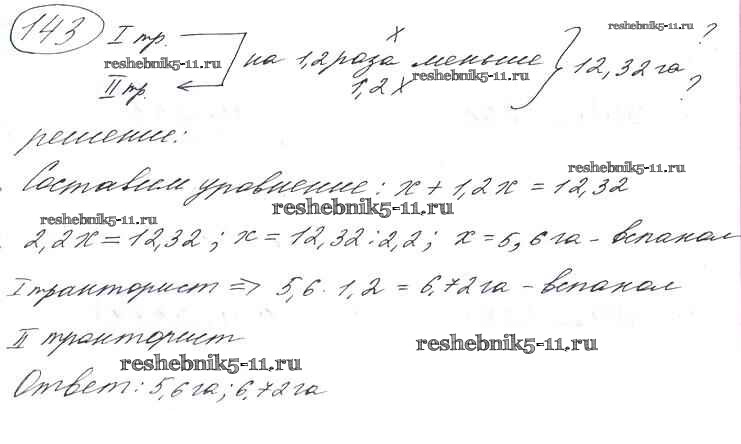 143 I тр. x ? reshebnik5-11.ru
reshebnik5-11.ru на 1,2 раза меньше 12,32 га
II тр. 1,2x reshebnik5-11.ru ?
решение:
Составим уравнение: x + 1,2x = 12,32 reshebnik5-11.ru
reshebnik5-11.ru
reshebnik5-11.ru
2,2x = 12,32; x = 12,32:2,2; x = 5,6 га - вспахал
I тракторист => 5,6 · 1,2 = 6,72 га - вспахал
II тракторист
reshebnik5-11.ru reshebnik5-11.ru
Ответ: 5,6 га; 6,72 га